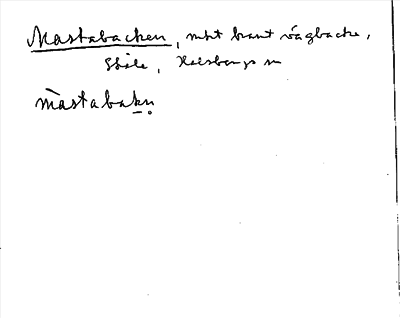 Mastabacken, mkt brant vägbacke,
Skåle, Karsbergs sn
màstabakn̥